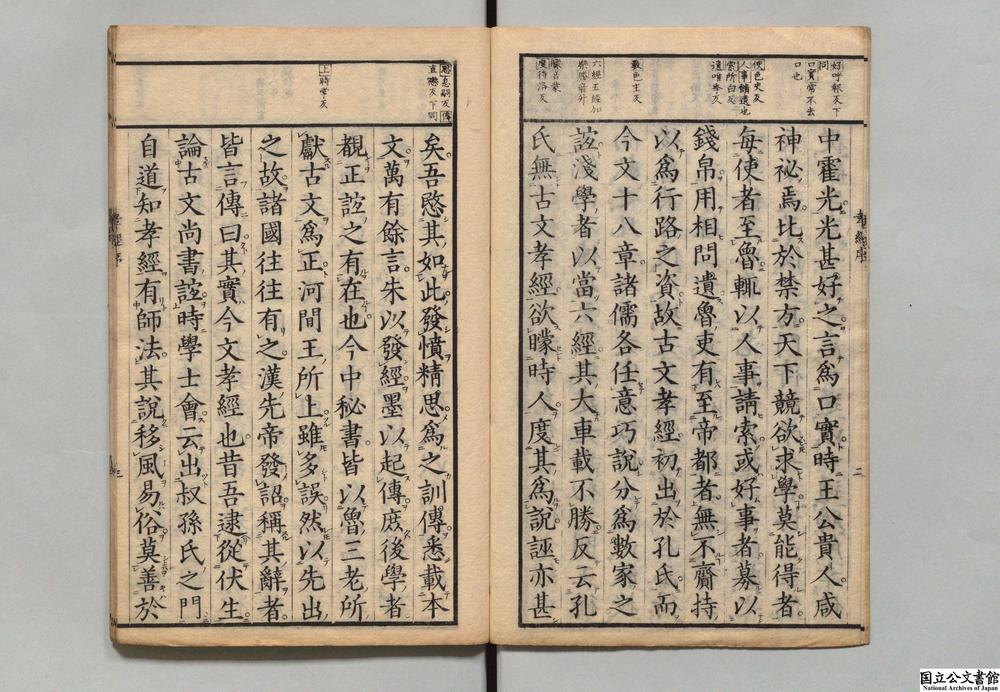 好呼報反下
同
口實常不去
口也
使色吏反
人事餽遺也
索所白反
遺唯季反
數色主反
六經五經加
樂勝音升
度待洛反
中霍光光甚好之言爲口實時王公貴人咸
神祕焉比於禁方天下競欲求學莫能得者
每使者至魯輒以人事請索或好事者募以
錢帛用相問遺魯吏有至帝都者無不齎持
以爲行路之資故古文孝經初出於孔氏而
今文十八章諸儒各任意巧說分爲數家之
誼淺學者以當六經其大車載不勝反云孔
氏無古文孝經欲矇時人度其爲說誣亦甚
孝經序
二
直愍反下同
上時掌反
矣吾愍其如此發憤精思爲之訓傳悉載本
文萬有餘言朱以發經墨以起傳庶後學者
覩正誼之有在也今中祕書皆以魯三老所
獻古文爲正河間王所上雖多誤然以先出
之故諸國往往有之漢先帝發詔稱其辭者
皆言傳曰其實今文孝經也昔吾逮從伏生
論古文尚書誼時學士會云出叔孫氏之門
自道知孝經有師法其說移風易俗莫善於
孝經序
三
国立公文書館
National Archives of Japan